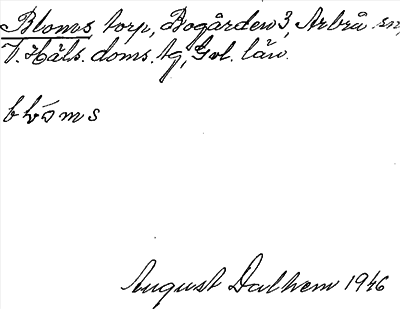 Bloms, torp, Bogården 3, Arbrå sn,
V. Häls. doms. tg, Gvl. län.
August Dalhem 1946